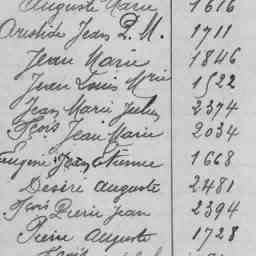 Auguste Marie 1616
Aristide Jean P. M. 1711
Jean Marie 1846
Jean Louis Mrie 1522
Jean Marie Jules 2374
Fçois Jean Marie 2034
Eugène Jean Etienne 1668
Désiré Auguste 2481
Fçois Pierre Jean 2394
Pierre Auguste 1728
Fçois